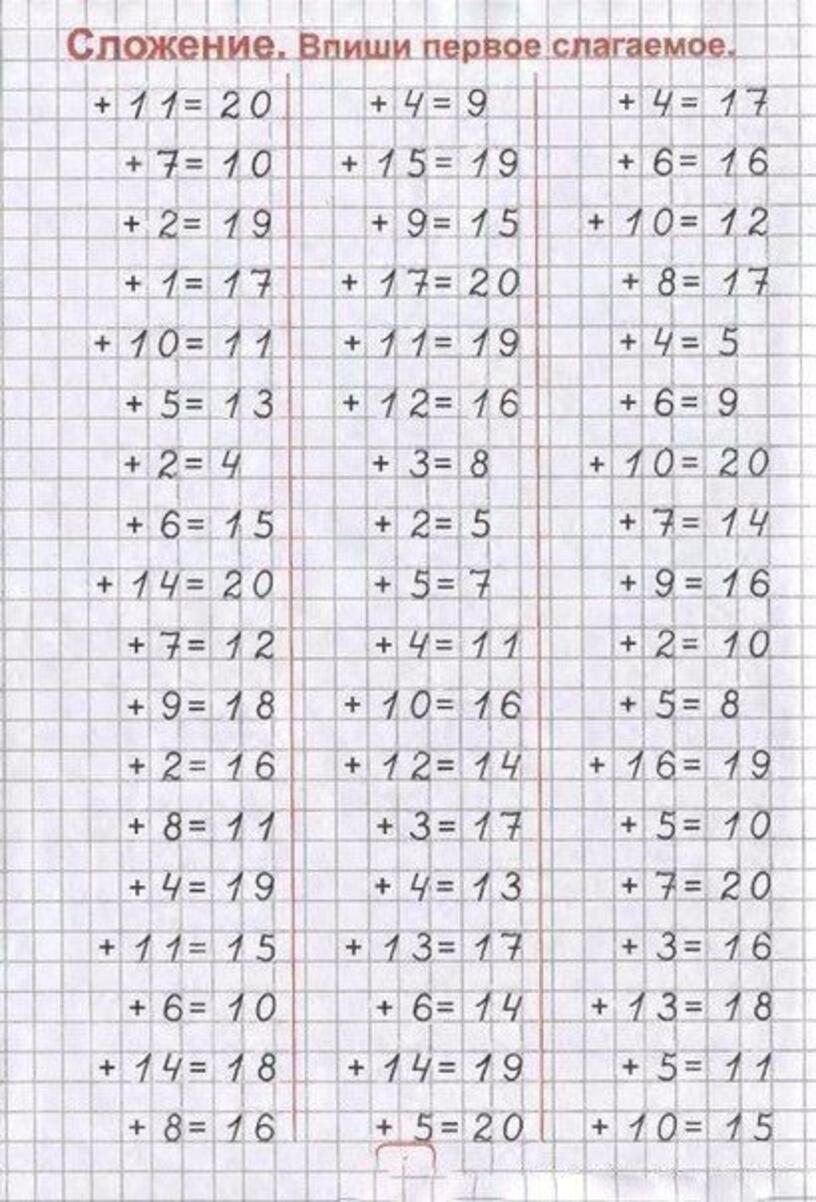 Сложение. Впиши первое слагаемое.
+ 11 = 20
+ 7 = 10
+ 2 = 19
+ 1 = 17
+ 10 = 11
+ 5 = 13
+ 2 = 4
+ 6 = 15
+ 14 = 20
+ 7 = 12
+ 9 = 18
+ 2 = 16
+ 8 = 11
+ 4 = 19
+ 11 = 15
+ 6 = 10
+ 14 = 18
+ 8 = 16
+ 4 = 9
+ 15 = 19
+ 9 = 15
+ 17 = 20
+ 11 = 19
+ 12 = 16
+ 3 = 8
+ 2 = 5
+ 5 = 7
+ 4 = 11
+ 10 = 16
+ 12 = 14
+ 3 = 17
+ 4 = 13
+ 13 = 17
+ 6 = 14
+ 14 = 19
+ 5 = 20
+ 4 = 17
+ 6 = 16
+ 10 = 12
+ 8 = 17
+ 4 = 5
+ 6 = 9
+ 10 = 20
+ 7 = 14
+ 9 = 16
+ 2 = 10
+ 5 = 8
+ 16 = 19
+ 5 = 10
+ 7 = 20
+ 3 = 16
+ 13 = 18
+ 5 = 11
+ 10 = 15